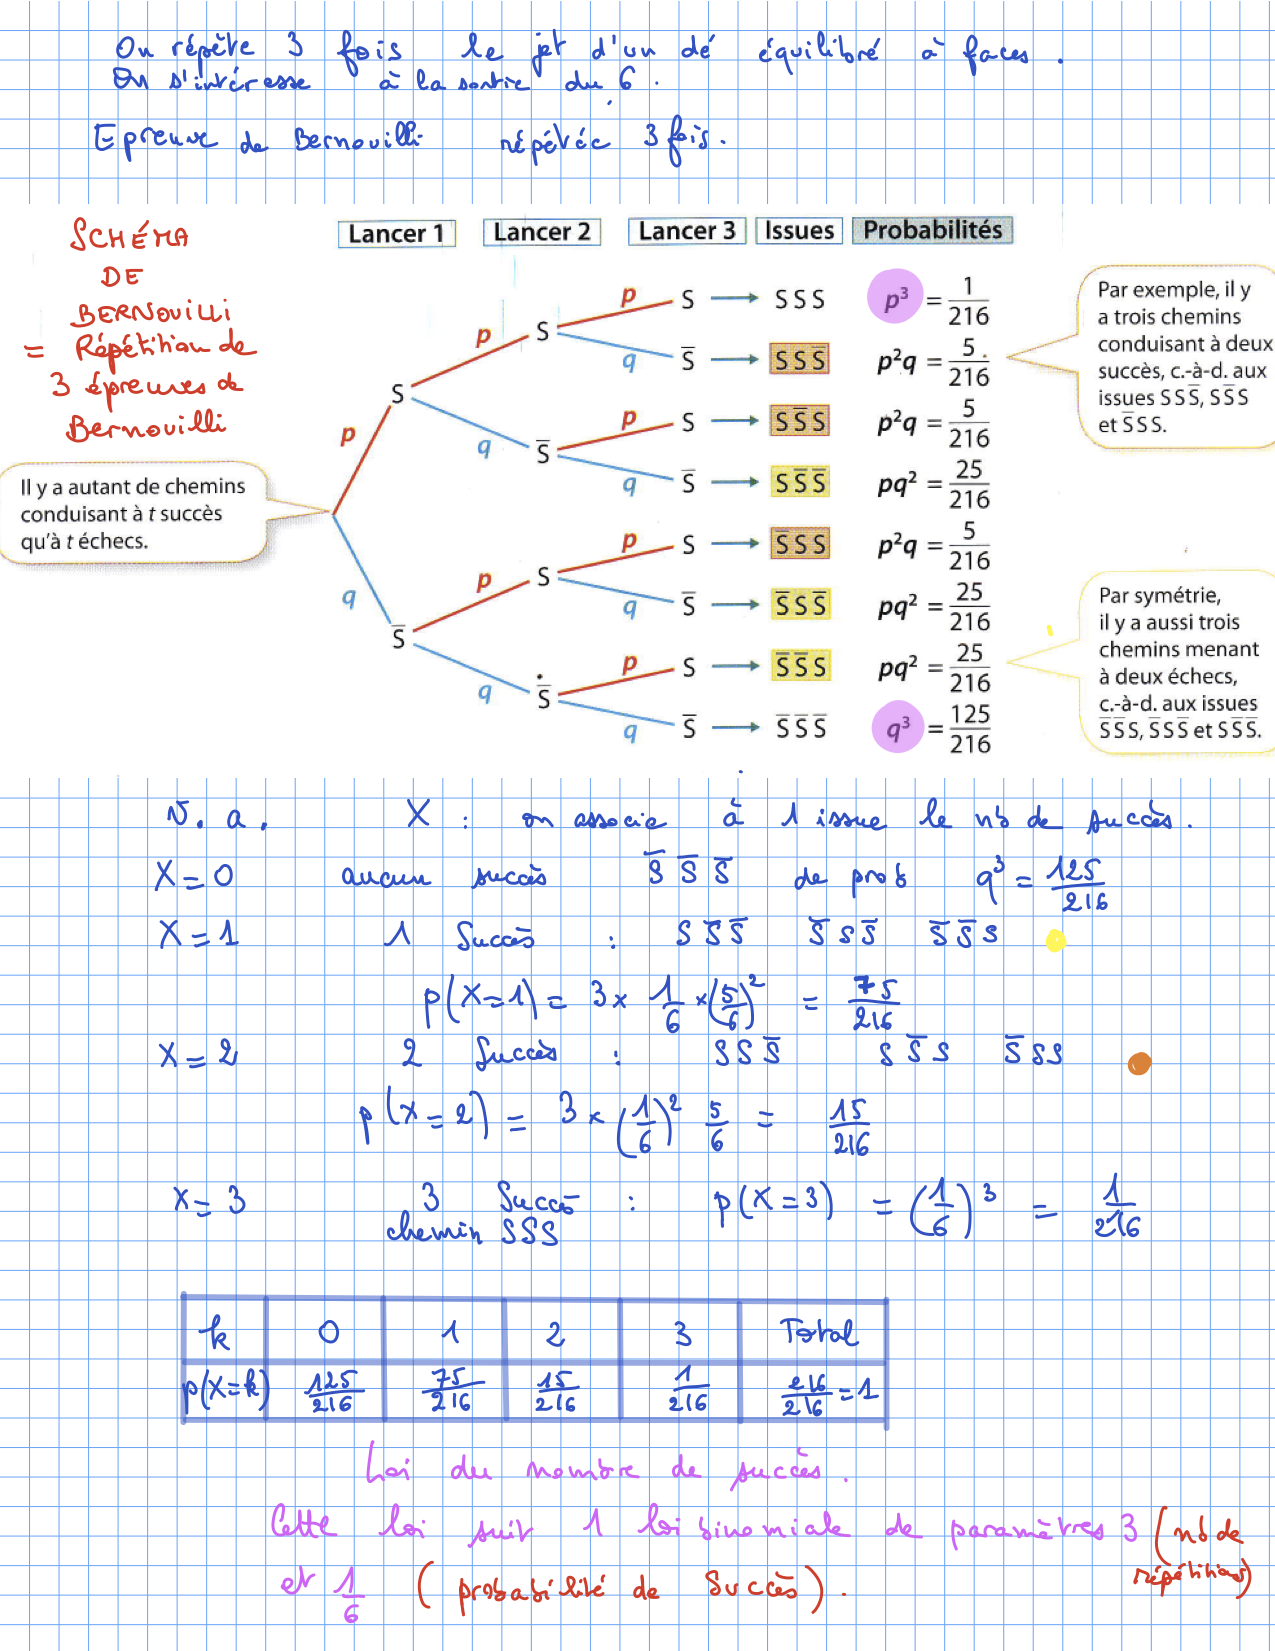 On répète 3 fois le jet d'un dé équilibré à faces.
On s'intéresse à la sortie du 6.
Epreuve de Bernouilli répétée 3 fois.
SCHÉMA
DE
BERNOUILLI
= Répétition de
3 épreuves de
Bernouilli
Il y a autant de chemins
conduisant à t succès
qu'à t échecs.
Lancer 1 Lancer 2 Lancer 3 Issues Probabilités
p S → S S S p³ = 1/216
p S
q S̅ → S S S̅ p²q = 5/216
S
p S → S S̅ S p²q = 5/216
q S̅
q S̅ → S S̅ S̅ pq² = 25/216
p
q
p S → S̅ S S p²q = 5/216
p S
q S̅ → S̅ S S̅ pq² = 25/216
S̅
p S → S̅ S̅ S pq² = 25/216
q S̅
q S̅ → S̅ S̅ S̅ q³ = 125/216
Par exemple, il y
a trois chemins
conduisant à deux
succès, c.-à-d. aux
issues S S S̅, S S̅ S
et S̅ S S.
Par symétrie,
il y a aussi trois
chemins menant
à deux échecs,
c.-à-d. aux issues
S̅ S̅ S, S̅ S S̅ et S S̅ S̅.
V. a. X : on associe à 1 issue le nb de succès.
X = 0 aucun succès S̅ S̅ S̅ de prob q³ = 125/216
X = 1 1 Succès : S S̅ S̅ S̅ S S̅ S̅ S̅ S
p(X=1) = 3 × 1/6 × (5/6)² = 75/216
X = 2 2 Succès : S S S̅ S S̅ S S̅ S S
p(X=2) = 3 × (1/6)² 5/6 = 15/216
X = 3 3 Succès : p(X=3) = (1/6)³ = 1/216
chemin SSS
k 0 1 2 3 Total
p(X=k) 125/216 75/216 15/216 1/216 216/216 = 1
Loi du nombre de succès.
Cette loi suit 1 loi binomiale de paramètres 3 (nb de
répétitions)
et 1/6 (probabilité de Succès).